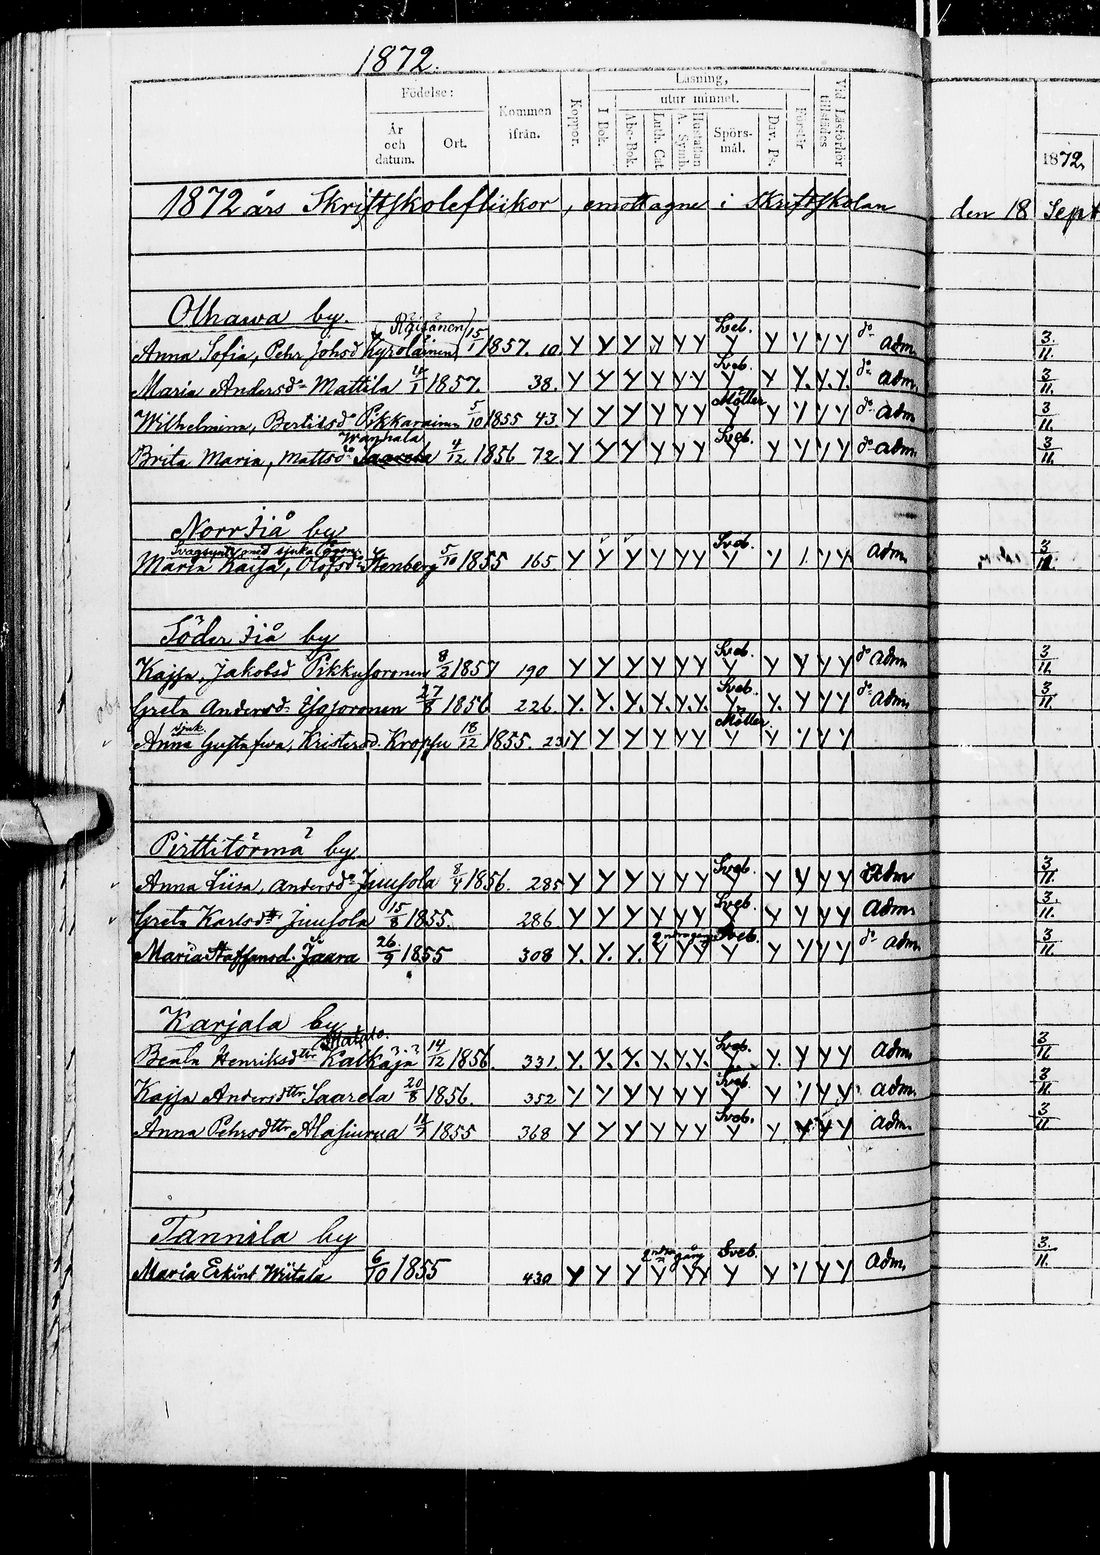 1872.
Födelse:
Kommen ifrån.
Koppor.
Läsning,
utur minnet.
I Bok.
Abc-Bok.
Luth. Cat.
A. Symb.
Hustaflan
Spörs-mål.
Dav. Ps.
Förstår
Vid Läsförhör tillstädes
År och datum.
Ort.
1872
1872 års Skriftskoleflickor, emottagne i Skriftskolan den 18 Sept
Olhawa by
Räisänen
Anna Sofia, Pehr Johsd Kyrölainen 15/1 1857. 10. Y Y Y Y Y Y Sveb. Y Y Y Y Y do Adm. 3/11.
Maria Andersdr Mattila 1857. 38. Y Y Y Y Y Y Sveb. Y Y Y. Y. Y. do Adm. 3/11.
Wilhelmina, Bertilsdr Pikkarainen 5/10 1855 43 Y Y Y Y Y Y Möller Y Y Y Y Y do Adm. 3/11.
Wanhala
Brita Maria, Mattsdr Saarela 4/12 1856 72 Y Y Y Y Y Y Sveb. Y Y Y Y Y do Adm. 3/11.
Norr Iiå by
Svagsynt med sjuka ögon
Maria Kaisa, Olofsdr Stenberg 5/10 1855 165 Y Y Y Y Y Y Sveb. Y Y Y Y Adm. 3/11.
Söder Iiå by
Kajsa, Jakobsd Pikkusoronen 8/2 1857 190 Y Y Y Y Y Y Sveb. Y Y Y Y Y do Adm. 3/11.
Greta Andersd. Isosoronen 27/8 1856 226. Y. Y. Y. Y. Y. Y. Sveb. Y Y. Y. Y Y do Adm. 3/11.
sjuk.
Anna Gustafwa, Kristersd. Kropsu 18/12 1855. 231 Y Y Y Y Y Y Möller. Y Y Y Y Y
Pirttitörmä by
Anna Liisa, Andersdr Juusola 8/4 1856. 285 Y Y Y Y Y Y Sveb. Y Y Y Y Y Adm 3/11.
Greta Karlsdtr Juusola 15/8 1855. 286 Y Y Y Y Y Y Sveb. Y Y Y Y Y Adm. 3/11.
Maria Staffansd. Jaara 26/9 1855 308 Y. Y. Y. Y Y Y 2ndra gång Sveb. Y Y Y Y Y do Adm. 3/11.
Karjala by
Beata Henriksdtr Katkaja 14/12 1856. 331. Y. Y. Y. Y. Y. Y. Sveb. Y Y. Y Y Y Adm. 3/11.
Kajsa Andersdttr Saarela 20/8 1856. 352 Y Y Y Y Y Y Sveb. Y Y Y Y Y Adm. 3/11.
Anna Pehrsdttr Alasiurua 1855 368 Y Y Y Y Y Y Sveb. Y Y Y Y Y Adm. 3/11.
Tannila by
Maria Erkint Wiitala 6/10 1855 430 Y Y Y Y Y Y 2ndra gång Sveb. Y Y Y Y Y Adm. 3/11.